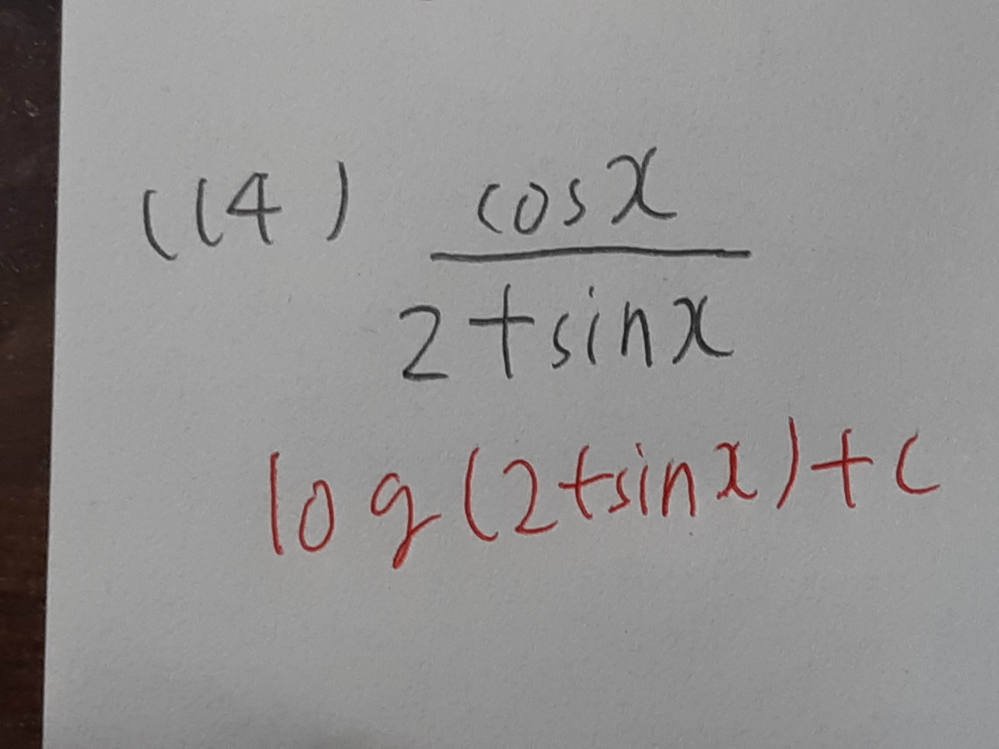 (14) cosx
2+sinx
log(2+sinx)+c